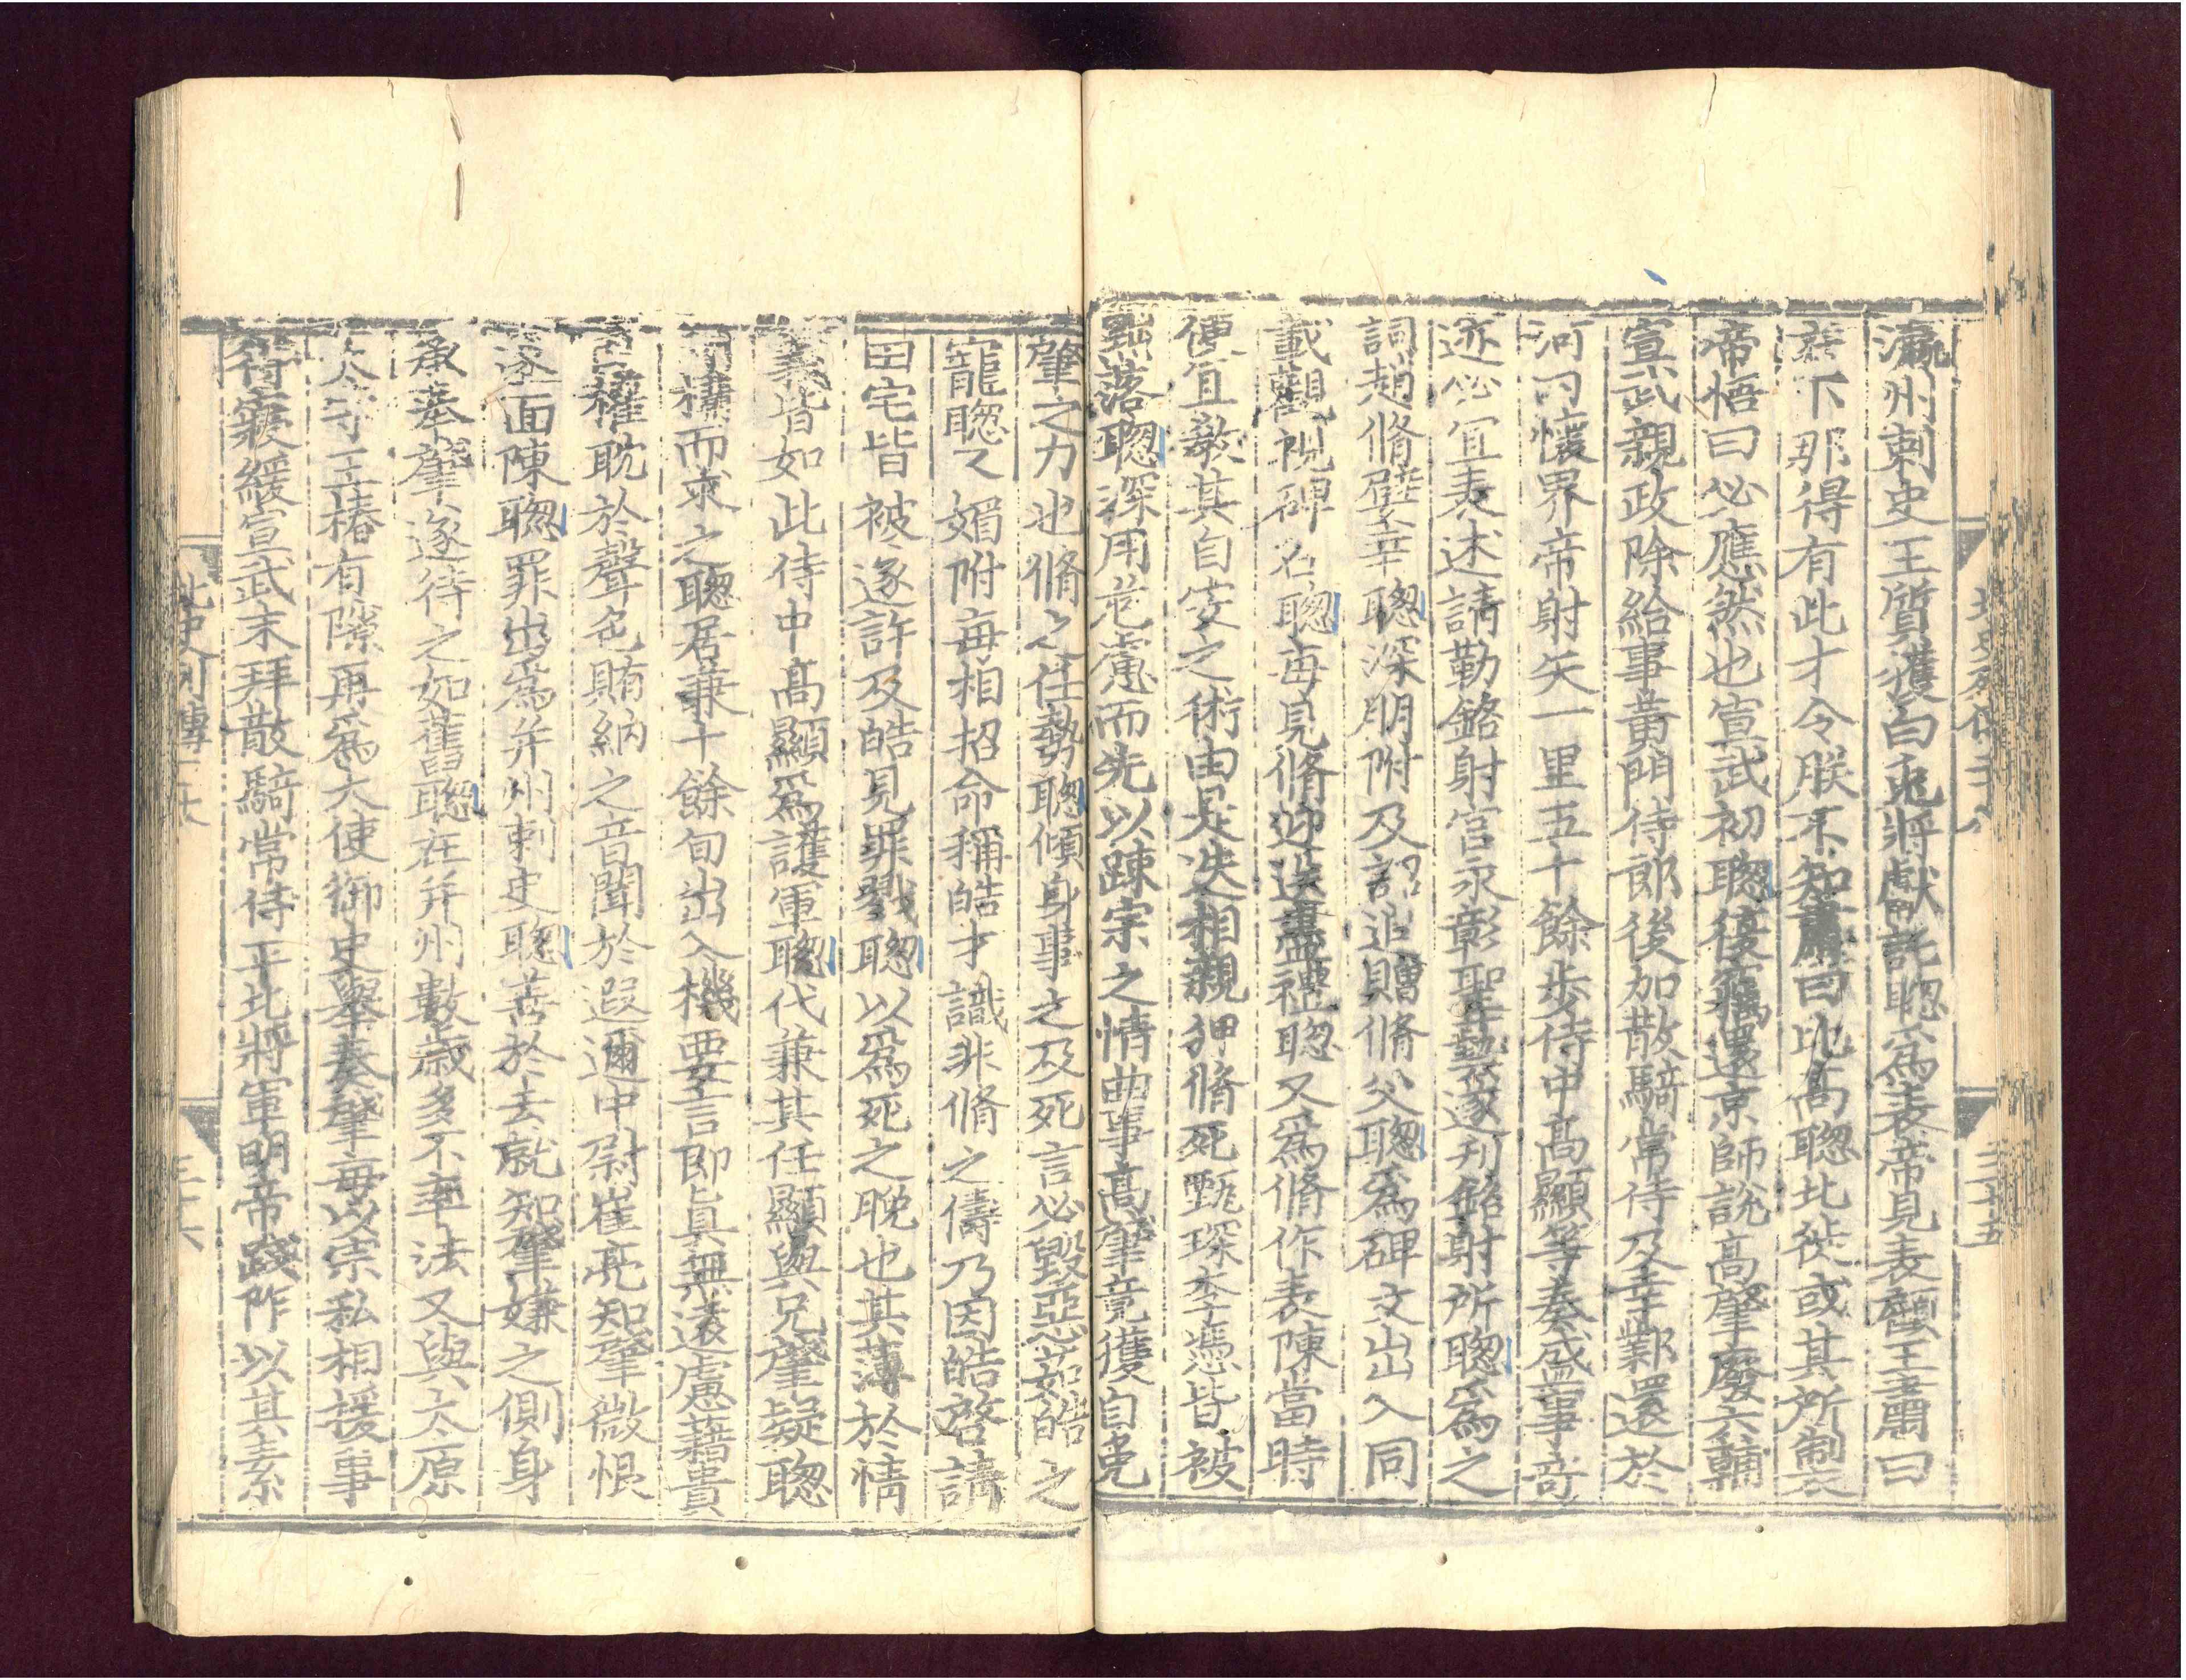 瀛州刺史王質獲白兎將獻託聦爲表帝見表顧王肅曰
在下那得有此才令朕不知肅曰比髙聦北徙或其所制
帝悟曰必應然也宣武初聦復竊還京師說高肇廢六輔
宣武親政除給事黄門侍郎後加散騎常侍及幸鄴還於
河内懷界帝射矢一里五十餘歩侍中髙顯等奏盛事竒
迹必宜表述請勒銘射宫永彰聖藝遂刋銘射所聦爲之
詞趙脩嬖幸聦深朋附及詔追贈脩父聦爲碑文出入同
載觀視碑石聦毎見脩迎送盡禮聦又爲脩作表陳當時
便宜教其自安之術由是迭相親狎脩死甄琛李憑皆被
黜落聦深用危慮而先以踈宗之情曲事高肇竟獲自免
肇之力也脩之任勢聦傾身事之及死言必毀惡茹皓之
寵聦又媚附毎相招命稱皓才識非脩之儔乃因皓啓請
田宅皆被遂許及皓見罪戮聦以爲死之晚也其薄於情
義皆如此侍中髙顯爲護軍聦代兼其任顯與兄肇疑聦
間構而求之聦居兼十餘旬出入機要言即真無遠慮藉貴
因權耽於聲色賄納之音聞於遐邇中尉崔亮知肇微恨
遂面陳聦罪出爲并州刺史聦善於去就知肇嫌之側身
承奉肇遂待之如舊聦在并州數歳多不率法又與太原
太守王椿有隙再爲大使御史舉奏肇毎以宗私相援事
得寢緩宣武末拜散騎常侍平北將軍明帝踐阼以其素
北史列傳二十八
三十五
北史列傳二十八
三十六